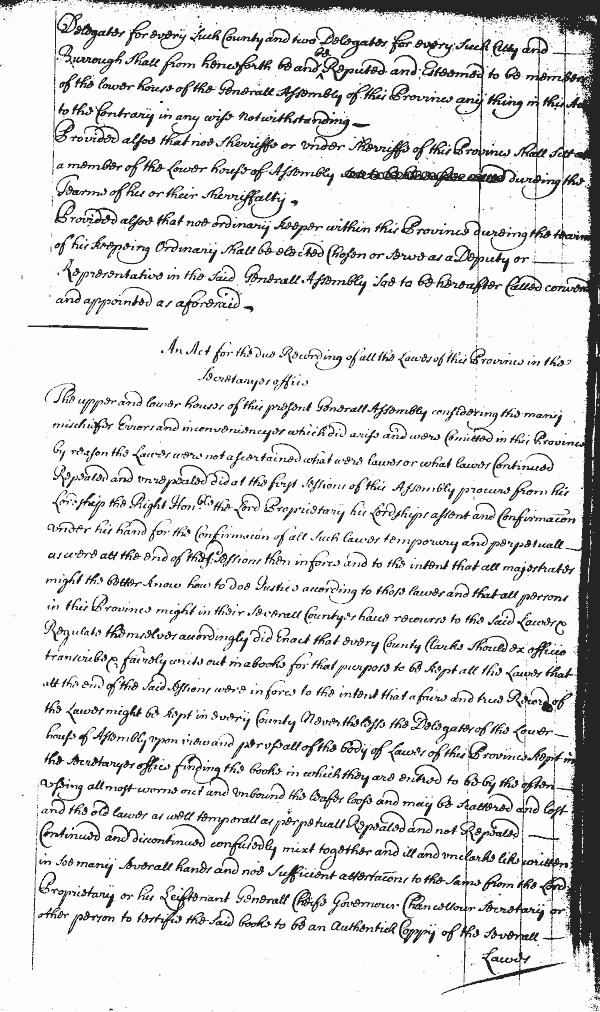 Delegates for every Such County and two Delegates for every Such Citty and
be
Burrough Shall from henceforth be and Reputed and Esteemed to be members
of the lower house of the Generall Assembly of this Province any thing in this Act
to the Contrary in any wise notwithstanding
Provided alsoe that noe Sherriffe or vnder Sherriffe of this Province Shall Sitt as
a member of the Lower house of Assembly dureing the
Tearme of his or their Sherriffalty.
Provided alsoe that noe ordinary keeper within this Province dureing the tearme
of his keepeing Ordinary Shall be elected Chosen or Serve as a Deputy or
Representative in the Said Generall Assembly Soe to be hereafter Called convened
and appointed as aforesaid
An Act for the due Recording of all the Lawes of this Province in the
Secretaryes office
The upper and lower houses of this present Generall Assembly considering the many
mischiefes Errors and inconveniencyes which did arise and were Comitted in this Province
by reason the Lawes were not ascertained what were lawes or what lawes Continued
Repealed and vnrepealed did at the first Sessions of this Assembly procure from his
Lordship the Right Honble the Lord Proprietary his Lordships assent and Confirmacon
vnder his hand for the Confirmacon of all Such lawes temporary and perpetuall
as were att the end of the Sessions then in force and to the intent that all majestrates
might the better know how to doe Justice acording to those lawes and that all persons
in this Province might in their Severall Countyes have recourse to the Said Lawes &
Regulate themselves accordingly did Enact that every County Clarke Should ex officio
transcribe & fairely write out in a booke for that purpose to be kept all the Lawes that
att the end of the Said Sessions were in force to the intent that a faire and true Record of
the Lawes might be kept in every County Neverthelesse the Delegates of the Lower
house of Assembly vpon view and perusall of the body of Lawes of this Province kept in
the Secretaryes office finding the bookes in which they are entred to be by the often
vseing all most worne out and vnbound the leafes loose and may be scattered and lost
and the old lawes as well temporall as perpetuall Repealed and not Repealed
Continued and discontinued confusedly mixt together and ill and vnclarke like written
in Soe many Severall hands and noe Sufficient attestacons to the Same from the Lord
Proprietary or his Leiftenant Generall Cheife Governour Chancellour Secretary or
other person to testifie the Said bookes to be an Authentick Coppy of the Severall
Lawes